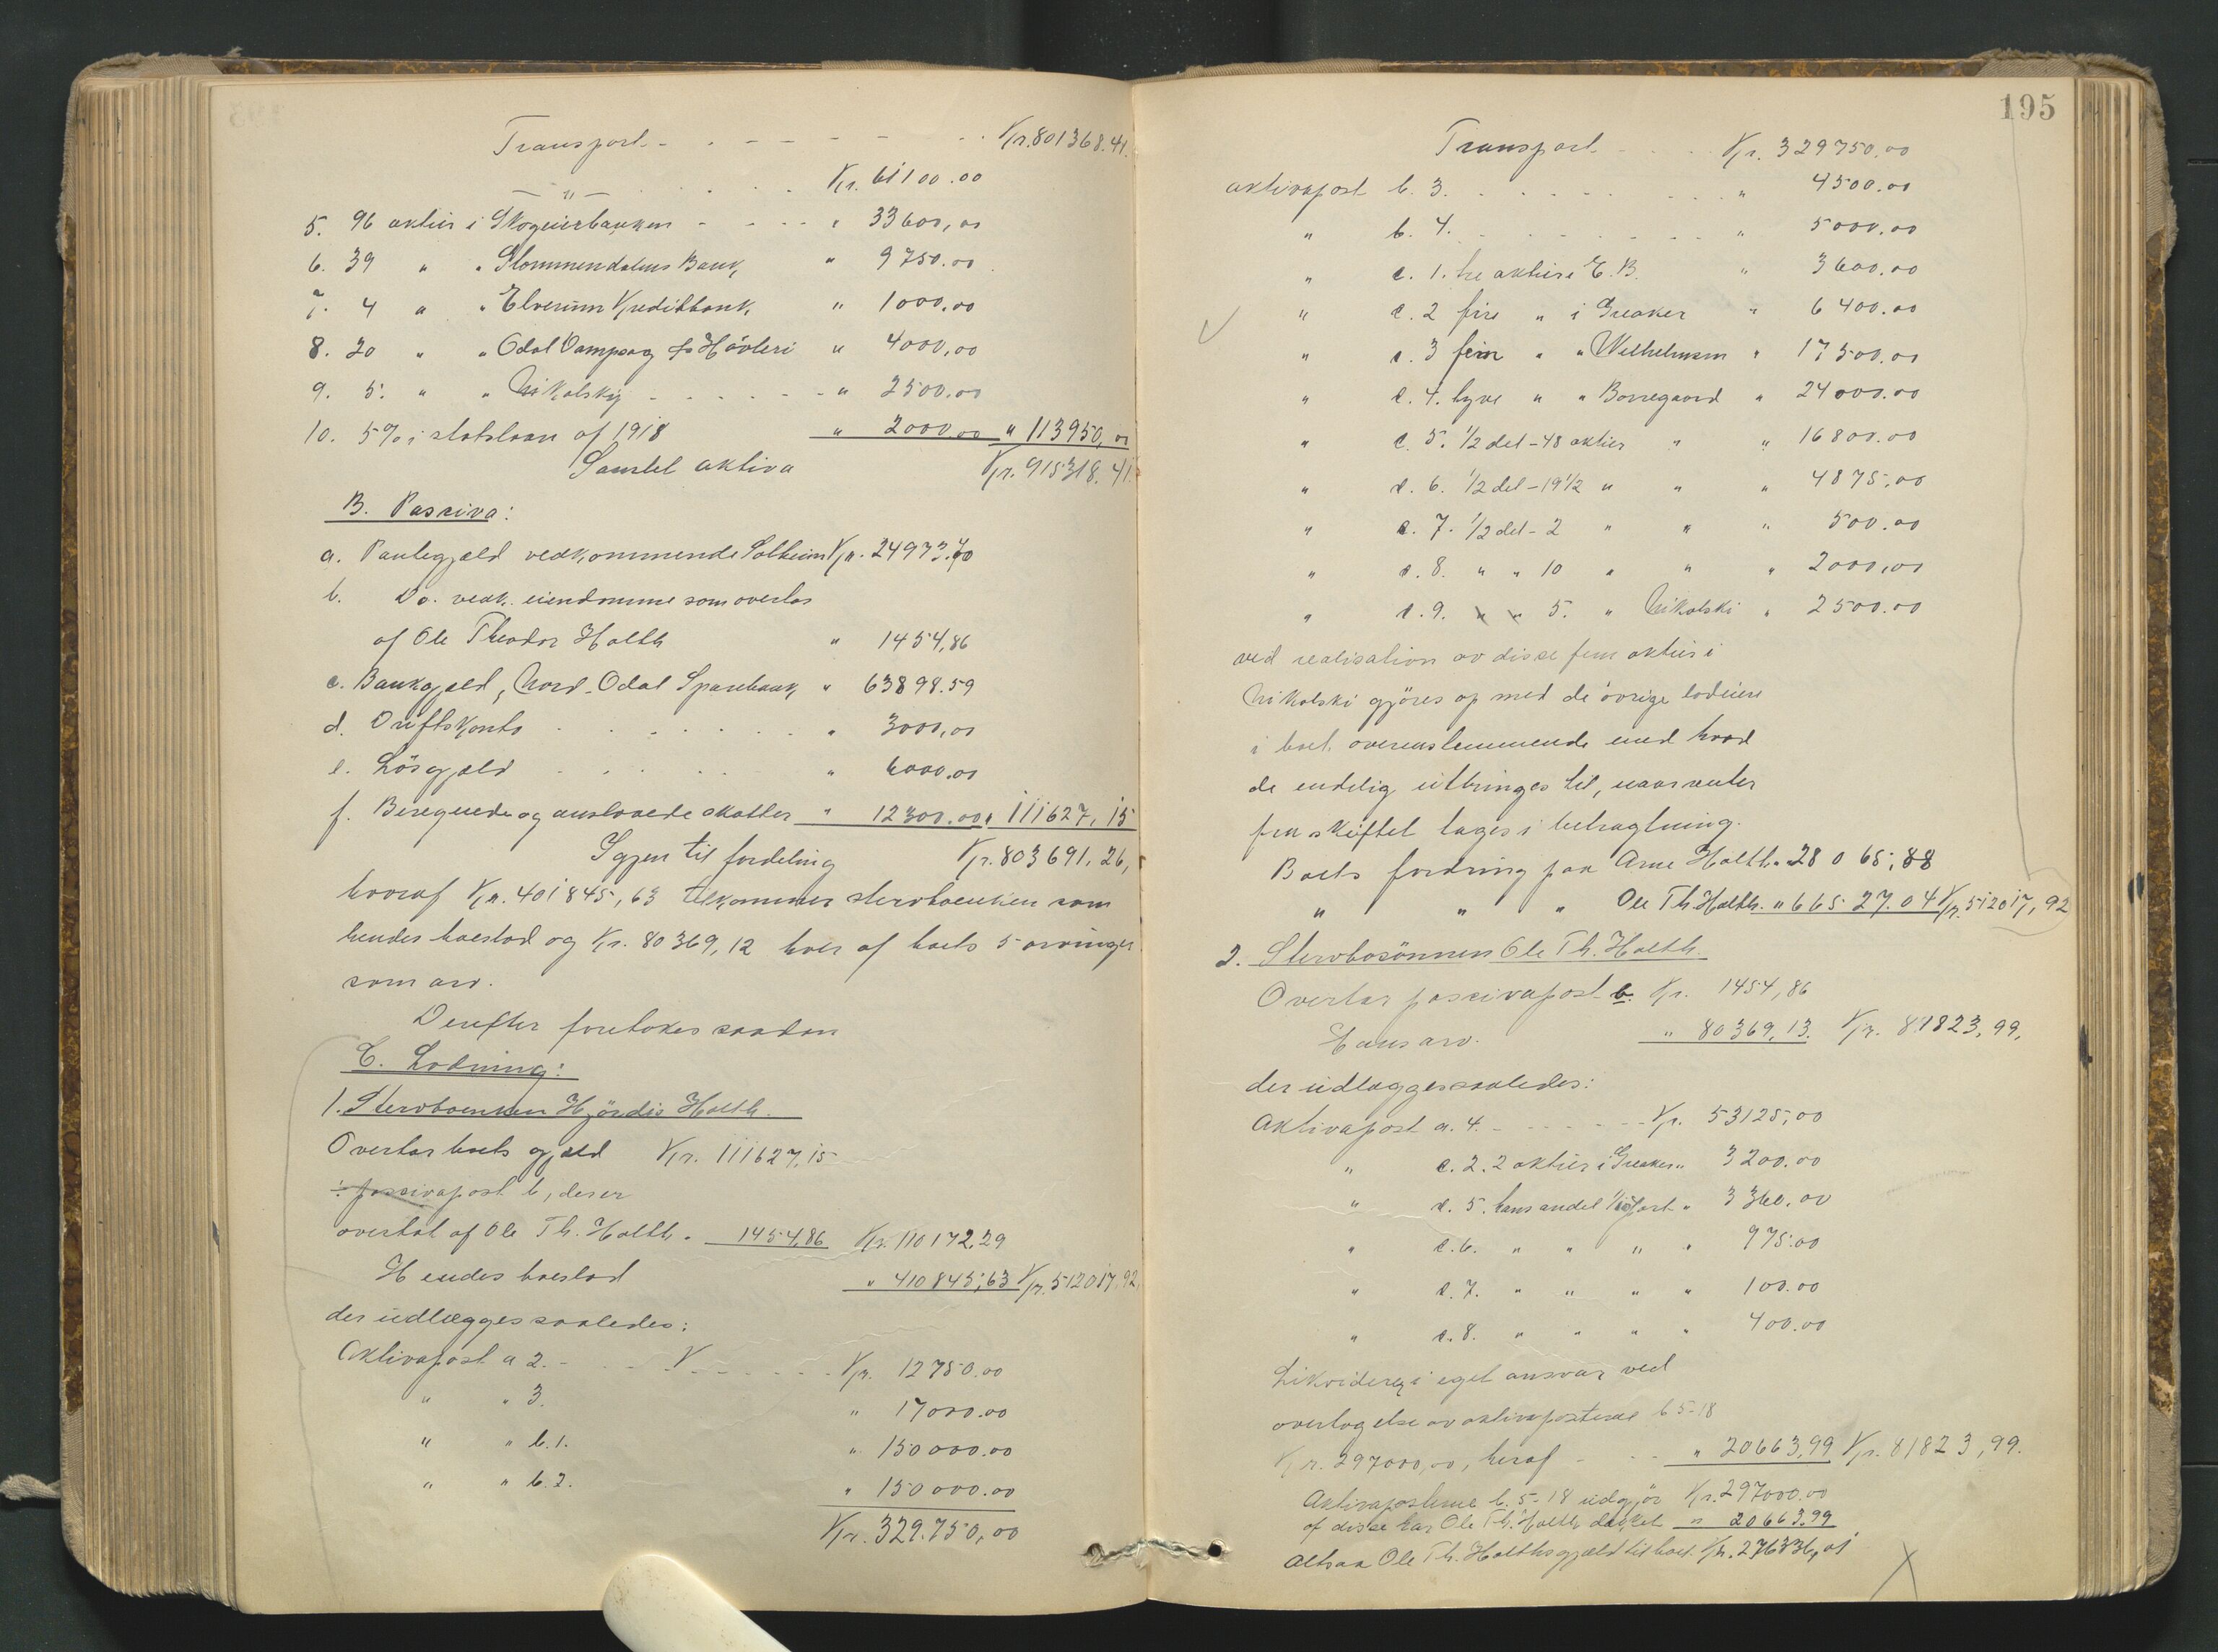 Transport Kr. 801368.41.
— " — Kr. 61100.00
5. 96 aktier i Skogeierbanken " 33600,00
6. 39 " " Glommendalens Bank, " 9750.00
7. 4 " " Elverum Kreditbank, " 1000.00
8. 20 " " Odal Dampsag & Høvleri " 4000,00
9. 5. " " Nikolsky " 2500.00
10. 5% i statslaan af 1918 " 2000.00 " 113950,00
Samlet aktiva Kr. 915318.41.
B. Passiva:
a. Pantegjæld vedkommende Solheim Kr. 24973.70
b. Do. vedk. eiendomme som overtas
af Ole Theodor Holth " 1454,86
c. Bankgjæld, Nord-Odal Sparebank " 63898.59
d. Driftskonto " 3000,00
e. Løsgjæld " 6000.00
f. Beregnede og anslaaede skatter " 12300.00 " 111627,15
Igjen til fordeling Kr. 803691,26,
hvoraf Kr. 401845,63 tilkommer stervboenken som
hendes boeslod og Kr. 80369,12 hver af boets 5 arvinger
som arv.
Derefter foretokes saadan
C. Lodning:
1. Stervboenken Hjørdis Holth.
Overtar boets gjæld Kr. 111627,15
÷ passivapost b, der er
overtat af Ole Th. Holth " 1454,86 Kr. 110172,29
Hendes boeslod " 410845,63 Kr. 512017,92
der udlægges saaledes:
Aktivapost a 2. Kr. 12750.00
" " 3. " 17000.00
" " b.1. " 150000.00
" " b.2. " 150000.00
Kr. 329.750,00
195
Transport Kr. 329750.00
aktivapost b. 3. " 4500.00
" b. 4. " 5000.00
" c. 1. tre aktier i E. B. " 3600.00
" c. 2 fire " i Greaker " 6400.00
" c. 3 fem " " Wilhelmsen " 17500.00
" c. 4. tyve " " Borregaard " 24000.00
" c. 5. 1/2 del - 48 aktier " " 16800.00
" c. 6. 1/2 del - 19 1/2 " " " 4875,00
" c. 7. 1/2 del - 2 " " " 500.00
" c. 8. " " 10 " " " 2000,00
" c. 9. " " 5. " Nikolski " 2500.00
ved realisation av disse fem aktier i
Nikolski gjøres op med de øvrige lodeiere
i boet overensstemmende med hvad
de endelig utbringes til, naar renter
fra skiftet tages i betragtning.
Boets fordring paa Arne Holth " 28065,88
" " " Ole Th. Holth. " 66527.04 Kr. 512017,92
2. Stervbosønnen Ole Th. Holth.
Overtar passivapost b. Kr. 1454,86
Hans arv. " 80369,13. Kr. 81823,99.
der udlægges saaledes:
Aktivapost a. 4. Kr. 53125,00
" c. 2. 2 aktier i Greaker " 3200.00
" c. 5. hans andel 1/10 part " 3360.00
" c. 6. " " " " 975.00
" c. 7. " " " " 100.00
" c. 8. " " " " 400.00
Likviderer i eget ansvar ved
overtagelse av aktivaposterne b 5-18
Kr. 297000,00, heraf " 20663,99 Kr. 81823,99.
Aktivaposterne b. 5-18 udgjør Kr. 297000.00
af disse har Ole Th. Holth dækket " 20663,99
altsaa Ole Th. Holths gjæld til boet. Kr. 276336,01